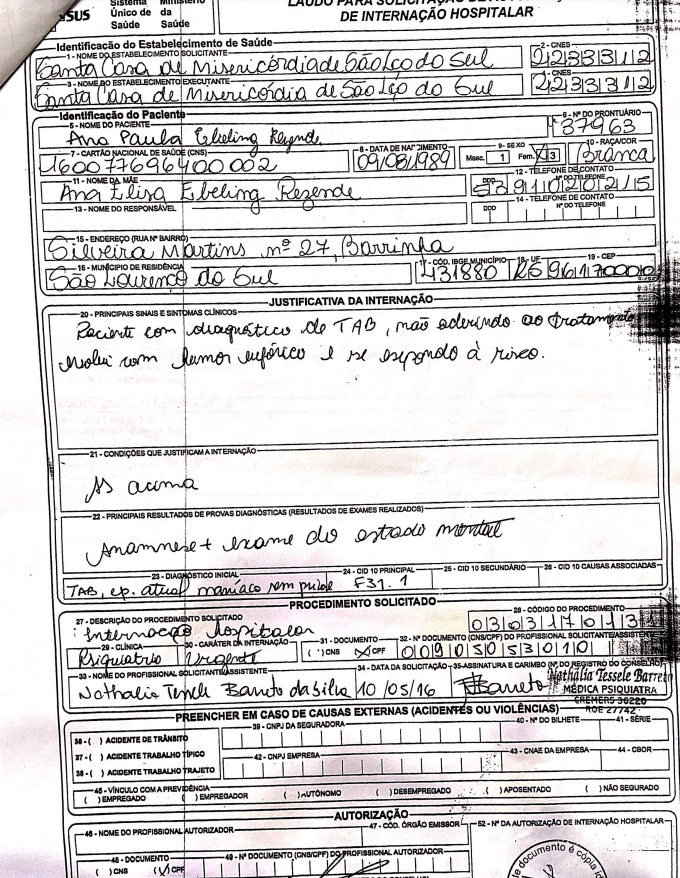 SUS
Sistema Ministério
Único de da
Saúde Saúde
LAUDO PARA SOLICITAÇÃO DE
DE INTERNAÇÃO HOSPITALAR
Identificação do Estabelecimento de Saúde
1 - NOME DO ESTABELECIMENTO SOLICITANTE
2 - CNES
Santa Casa de Misericórdia de São Lço do Sul
2233312
3 - NOME DO ESTABELECIMENTO EXECUTANTE
2 - CNES
Santa Casa de Misericórdia de São Lço do Sul
2233312
Identificação do Paciente
5 - NOME DO PACIENTE
6 - Nº DO PRONTUÁRIO
Ana Paula Ebeling Rezende
37963
7 - CARTÃO NACIONAL DE SAÚDE (CNS)
8 - DATA DE NASCIMENTO
9 - SEXO
10 - RAÇA/COR
160077696400002
09/08/1989
Masc. 1 Fem. X 3
Branca
11 - NOME DA MÃE
12 - TELEFONE DE CONTATO
DDD Nº DO TELEFONE
Ana Elisa Ebeling Rezende
53 91020215
13 - NOME DO RESPONSÁVEL
14 - TELEFONE DE CONTATO
DDD Nº DO TELEFONE
15 - ENDEREÇO (RUA Nº BAIRRO)
Silveira Martins nº 27, Barrinha
16 - MUNICÍPIO DE RESIDÊNCIA
17 - CÓD. IBGE MUNICÍPIO
18 - UF
19 - CEP
São Lourenço do Sul
431880
RS
96170000
JUSTIFICATIVA DA INTERNAÇÃO
20 - PRINCIPAIS SINAIS E SINTOMAS CLÍNICOS
Paciente com diagnóstico de TAB, não aderindo ao tratamento
evolui com humor eufórico e se expondo à risco.
21 - CONDIÇÕES QUE JUSTIFICAM A INTERNAÇÃO
As acima
22 - PRINCIPAIS RESULTADOS DE PROVAS DIAGNÓSTICAS (RESULTADOS DE EXAMES REALIZADOS)
Anamnese + exame do estado mental
23 - DIAGNÓSTICO INICIAL
24 - CID 10 PRINCIPAL
25 - CID 10 SECUNDÁRIO
26 - CID 10 CAUSAS ASSOCIADAS
TAB, ep. atual maníaco sem psicose
F31.1
PROCEDIMENTO SOLICITADO
27 - DESCRIÇÃO DO PROCEDIMENTO SOLICITADO
28 - CÓDIGO DO PROCEDIMENTO
Internação hospitalar
0303170131
29 - CLÍNICA
30 - CARÁTER DA INTERNAÇÃO
31 - DOCUMENTO
32 - Nº DOCUMENTO (CNS/CPF) DO PROFISSIONAL SOLICITANTE/ASSISTENTE
Psiquiatria
Urgente
( ) CNS (X) CPF
00905053010
33 - NOME DO PROFISSIONAL SOLICITANTE/ASSISTENTE
34 - DATA DA SOLICITAÇÃO
35-ASSINATURA E CARIMBO (Nº DO REGISTRO DO CONSELHO)
Nathalia Tessele Barreto da Silva
10/05/16
Barreto
Nathália Tessele Barreto
MÉDICA PSIQUIATRA
CREMERS 36220
RQE 27742
PREENCHER EM CASO DE CAUSAS EXTERNAS (ACIDENTES OU VIOLÊNCIAS)
36 - ( ) ACIDENTE DE TRÂNSITO
39 - CNPJ DA SEGURADORA
40 - Nº DO BILHETE
41 - SÉRIE
37 - ( ) ACIDENTE TRABALHO TÍPICO
42 - CNPJ EMPRESA
43 - CNAE DA EMPRESA
44 - CBOR
38 - ( ) ACIDENTE TRABALHO TRAJETO
45 - VÍNCULO COM A PREVIDÊNCIA
( ) EMPREGADO ( ) EMPREGADOR ( ) AUTÔNOMO ( ) DESEMPREGADO ( ) APOSENTADO ( ) NÃO SEGURADO
AUTORIZAÇÃO
46 - NOME DO PROFISSIONAL AUTORIZADOR
47 - CÓD. ÓRGÃO EMISSOR
52 - Nº DA AUTORIZAÇÃO DE INTERNAÇÃO HOSPITALAR
48 - DOCUMENTO
49 - Nº DOCUMENTO (CNS/CPF) DO PROFISSIONAL AUTORIZADOR
( ) CNS (X) CPF
documento é cópia